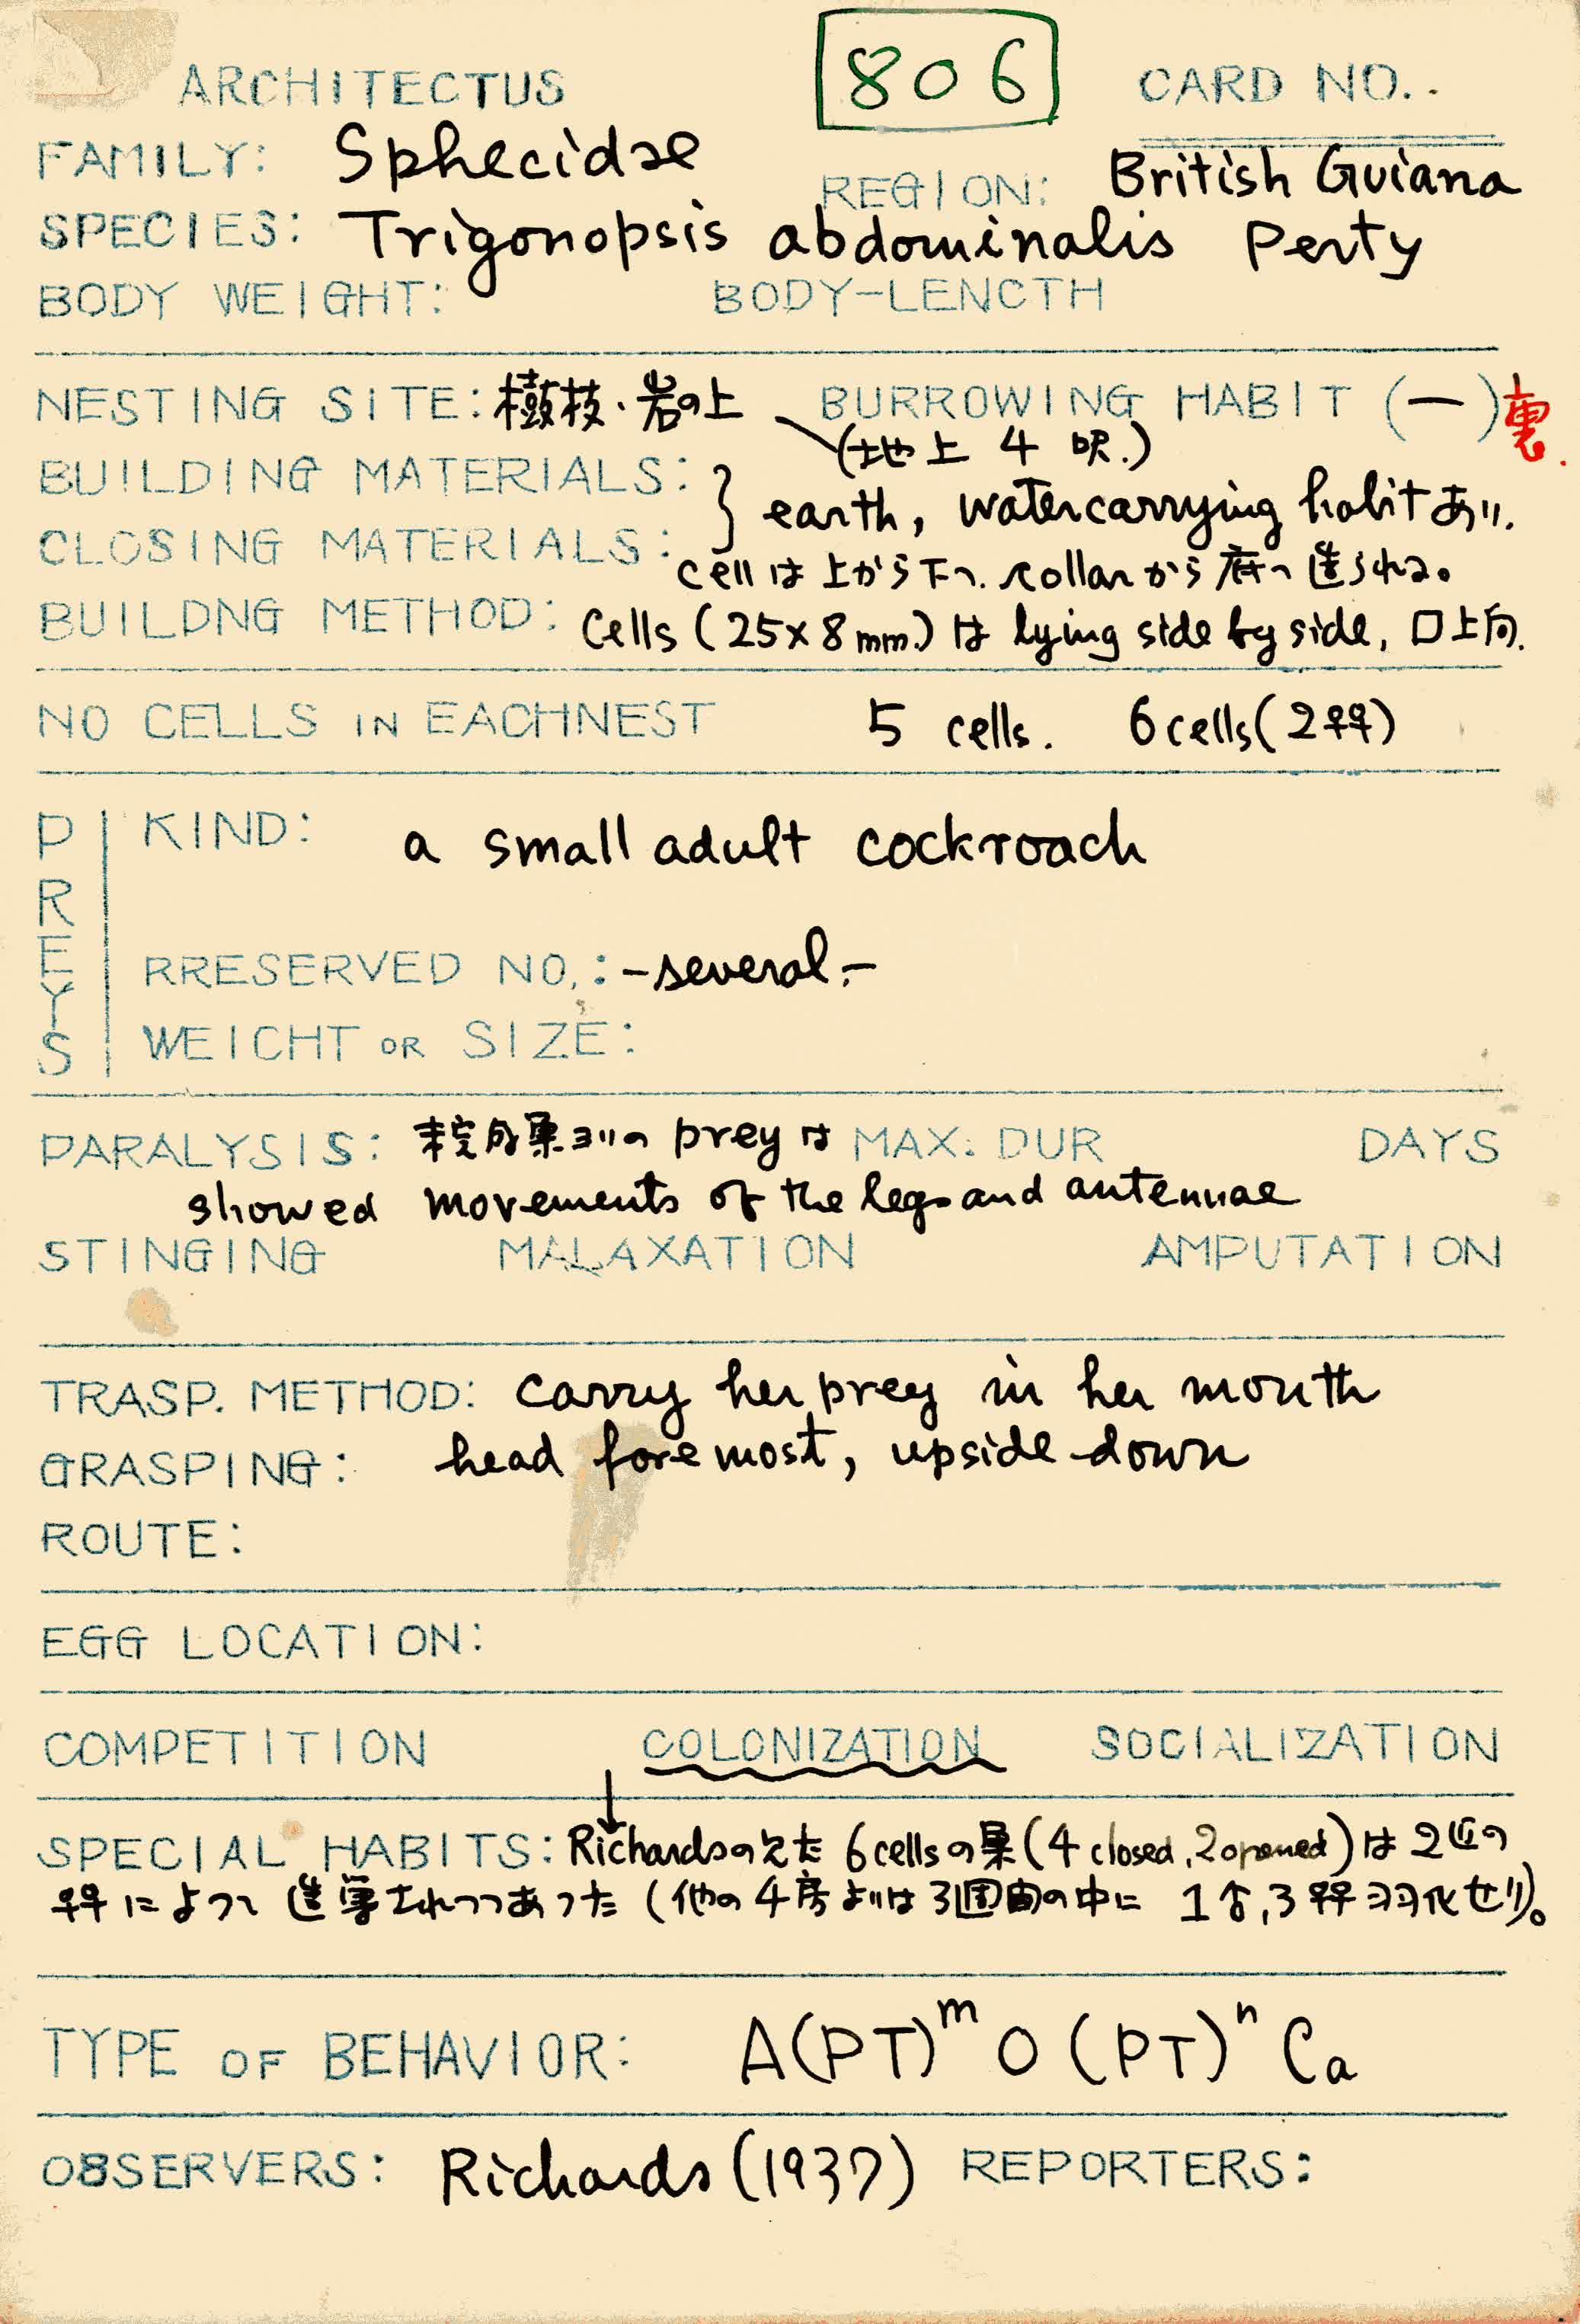 ARCHITECTUS 806 CARD NO..
FAMILY: Sphecidae REGION: British Guiana
SPECIES: Trigonopsis abdominalis Perty
BODY WEIGHT: BODY-LENCTH
NESTING SITE: 樹枝・岩の上 BURROWING HABIT (—) 裏.
(地上 4 呎.)
BUILDING MATERIALS: } earth, watercarrying habit あり.
CLOSING MATERIALS: cell は上から下へ. collar から底へ造られる。
BUILDNG METHOD: Cells (25×8mm.) は lying side by side, 口上向.
NO CELLS IN EACHNEST 5 cells. 6cells(2♀♀)
PREYS
KIND: a small adult cockroach
RRESERVED NO,: -several-
WEICHT OR SIZE:
PARALYSIS: 未完成巣ヨリの prey は MAX. DUR DAYS
showed movements of the legs and antennae
STINGING MALAXATION AMPUTATION
TRASP. METHOD: carry her prey in her mouth
GRASPING: head foremost, upside down
ROUTE:
EGG LOCATION:
COMPETITION COLONIZATION SOCIALIZATION
SPECIAL HABITS: Richardsの 6cellsの巣(4 closed, 2opened)は2匹の
♀♀によって造巣されつつあった(他の4房よりは3週間の中に 1♂,3♀♀羽化せり)。
TYPE OF BEHAVIOR: A(PT)ᵐ O (PT)ⁿ Ca
OBSERVERS: Richards (1937) REPORTERS: